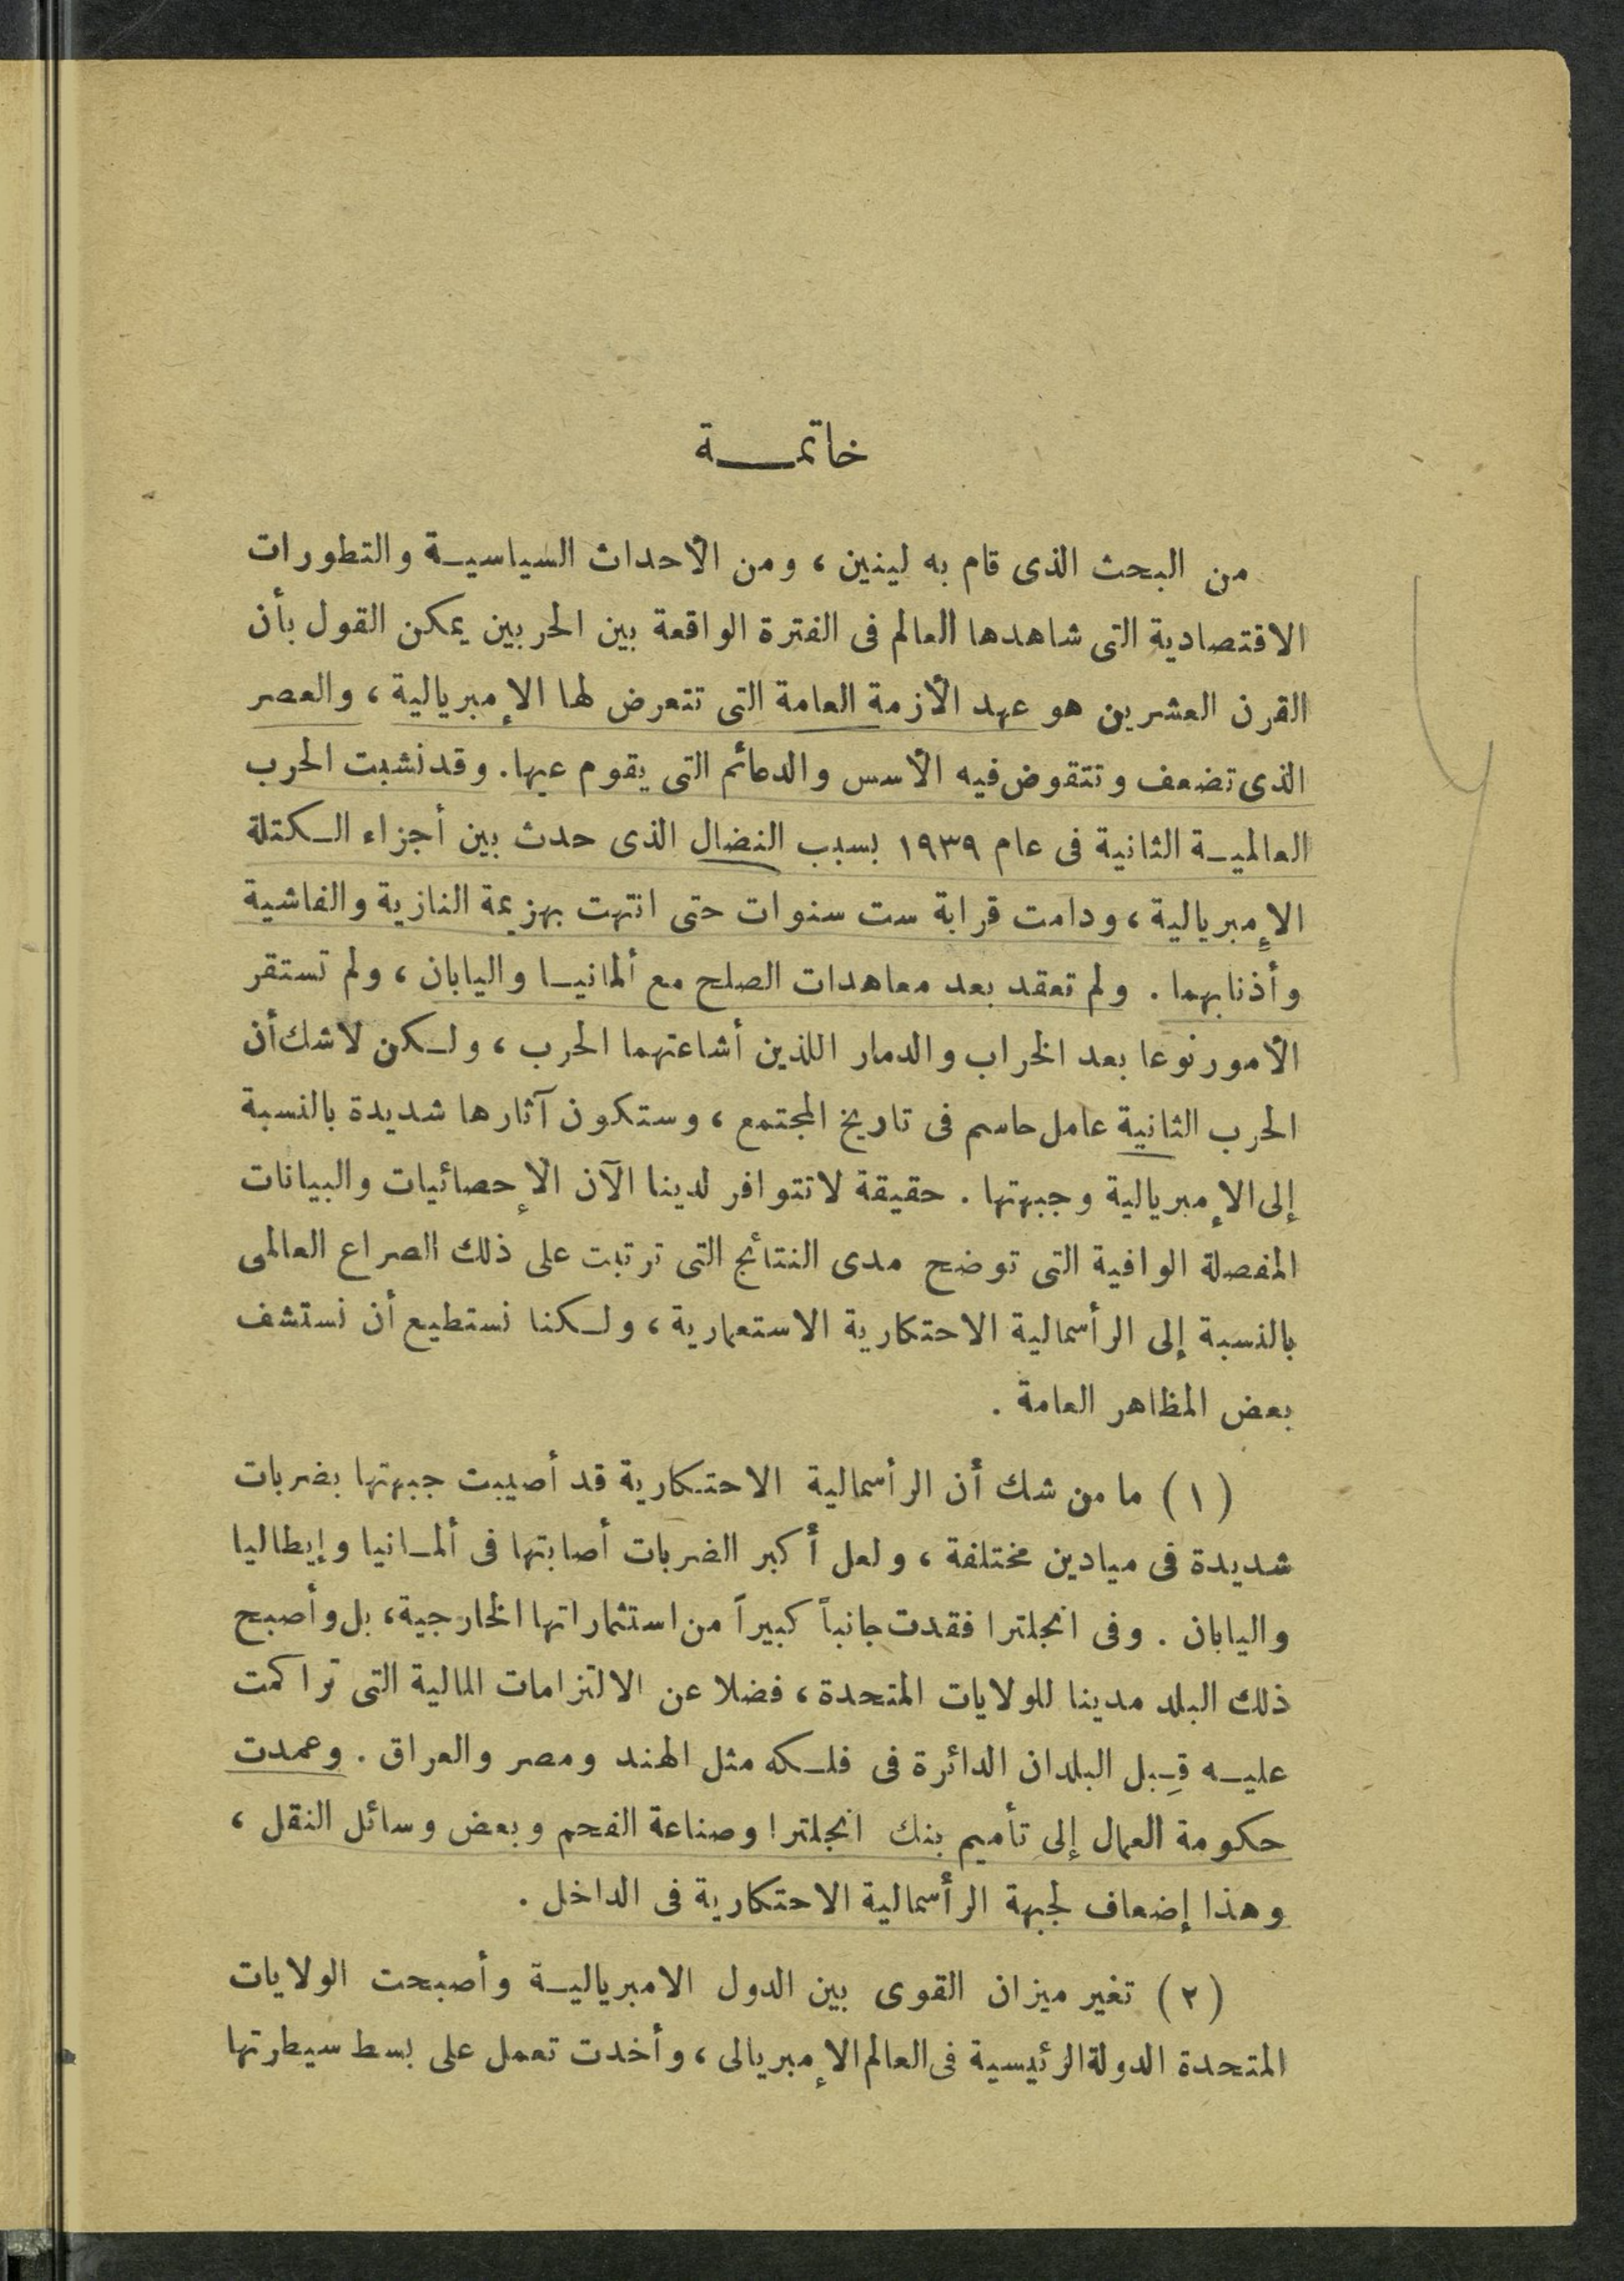 خاتمة
من البحث الذى قام به لينين ، ومن الأحداث السياسية والتطورات
الاقتصادية التى شاهدها العالم فى الفترة الواقعة بين الحربين يمكن القول بأن
القرن العشرين هو عهد الأزمة العامة التى تتعرض لها الإمبريالية ، والعصر
الذى تضعف وتتقوض فيه الأسس والدعائم التى يقوم عيها . وقد نشبت الحرب
العالمية الثانية فى عام ١٩٣٩ بسبب النضال الذى حدث بين أجزاء الكتلة
الإمبريالية ، ودامت قرابة ست سنوات حتى انتهت بهزيمة النازية والفاشية
وأذنابهما . ولم تعقد بعد معاهدات الصلح مع ألمانيا واليابان ، ولم تستقر
الأمور نوعا بعد الخراب والدمار اللذين أشاعتهما الحرب ، ولكن لا شك أن
الحرب الثانية عامل حاسم فى تاريخ المجتمع ، وستكون آثارها شديدة بالنسبة
إلى الإمبريالية وجبهتها . حقيقة لا تتوافر لدينا الآن الإحصائيات والبيانات
المفصلة الوافية التى توضح مدى النتائج التى ترتبت على ذلك الصراع العالمى
بالنسبة إلى الرأسمالية الاحتكارية الاستعمارية ، ولكنا نستطيع أن نستشف
بعض المظاهر العامة .
(١) ما من شك أن الرأسمالية الاحتكارية قد أصيبت جبهتها بضربات
شديدة فى ميادين مختلفة ، ولعل أكبر الضربات أصابتها فى ألمانيا وإيطاليا
واليابان . وفى انجلترا فقدت جانباً كبيراً من استثماراتها الخارجية ، بل وأصبح
ذلك البلد مدينا للولايات المتحدة ، فضلا عن الالتزامات المالية التى تراكمت
عليه قِبل البلدان الدائرة فى فلكه مثل الهند ومصر والعراق . وعمدت
حكومة العمال إلى تأميم بنك انجلترا وصناعة الفحم وبعض وسائل النقل ،
وهذا إضعاف لجبهة الرأسمالية الاحتكارية فى الداخل .
(٢) تغير ميزان القوى بين الدول الامبريالية وأصبحت الولايات
المتحدة الدولة الرئيسية فى العالم الإمبريالى ، وأخدت تعمل على بسط سيطرتها